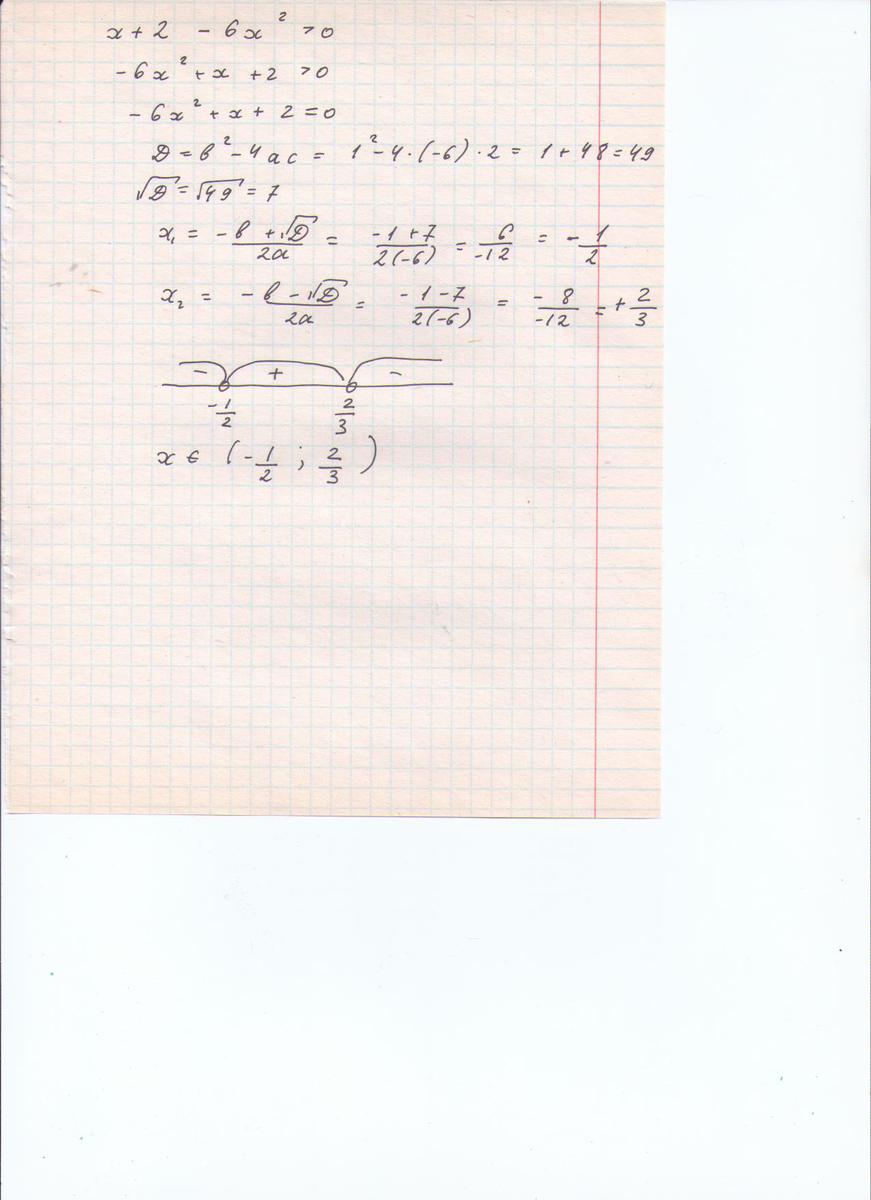 x + 2 - 6x² > 0
-6x² + x + 2 > 0
-6x² + x + 2 = 0
D = b² - 4ac = 1² - 4·(-6)·2 = 1 + 48 = 49
√D = √49 = 7
x₁ = (-b + √D)/2a = (-1 + 7)/2(-6) = 6/-12 = -1/2
x₂ = (-b - √D)/2a = (-1 - 7)/2(-6) = -8/-12 = +2/3
- + -
-1/2 2/3
x ∈ (-1/2 ; 2/3)